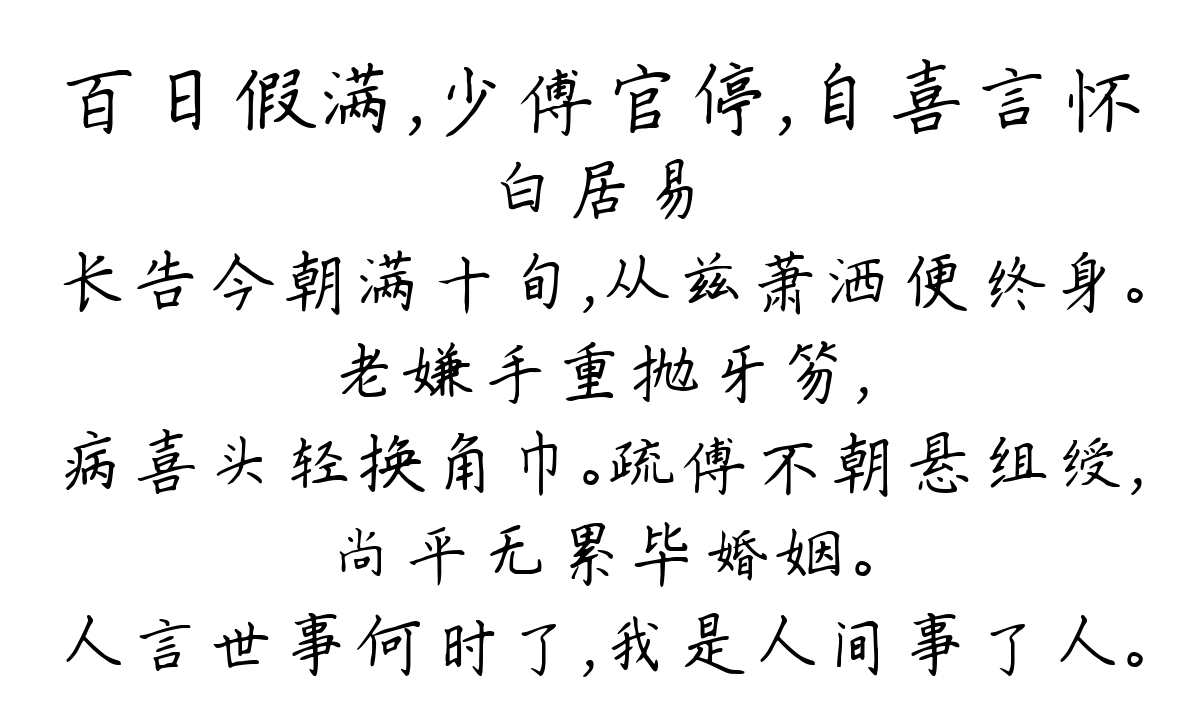 百日假满,少傅官停,自喜言怀
白居易
长告今朝满十旬,从兹萧洒便终身。
老嫌手重抛牙笏,
病喜头轻换角巾。疏傅不朝悬组绶,
尚平无累毕婚姻。
人言世事何时了,我是人间事了人。